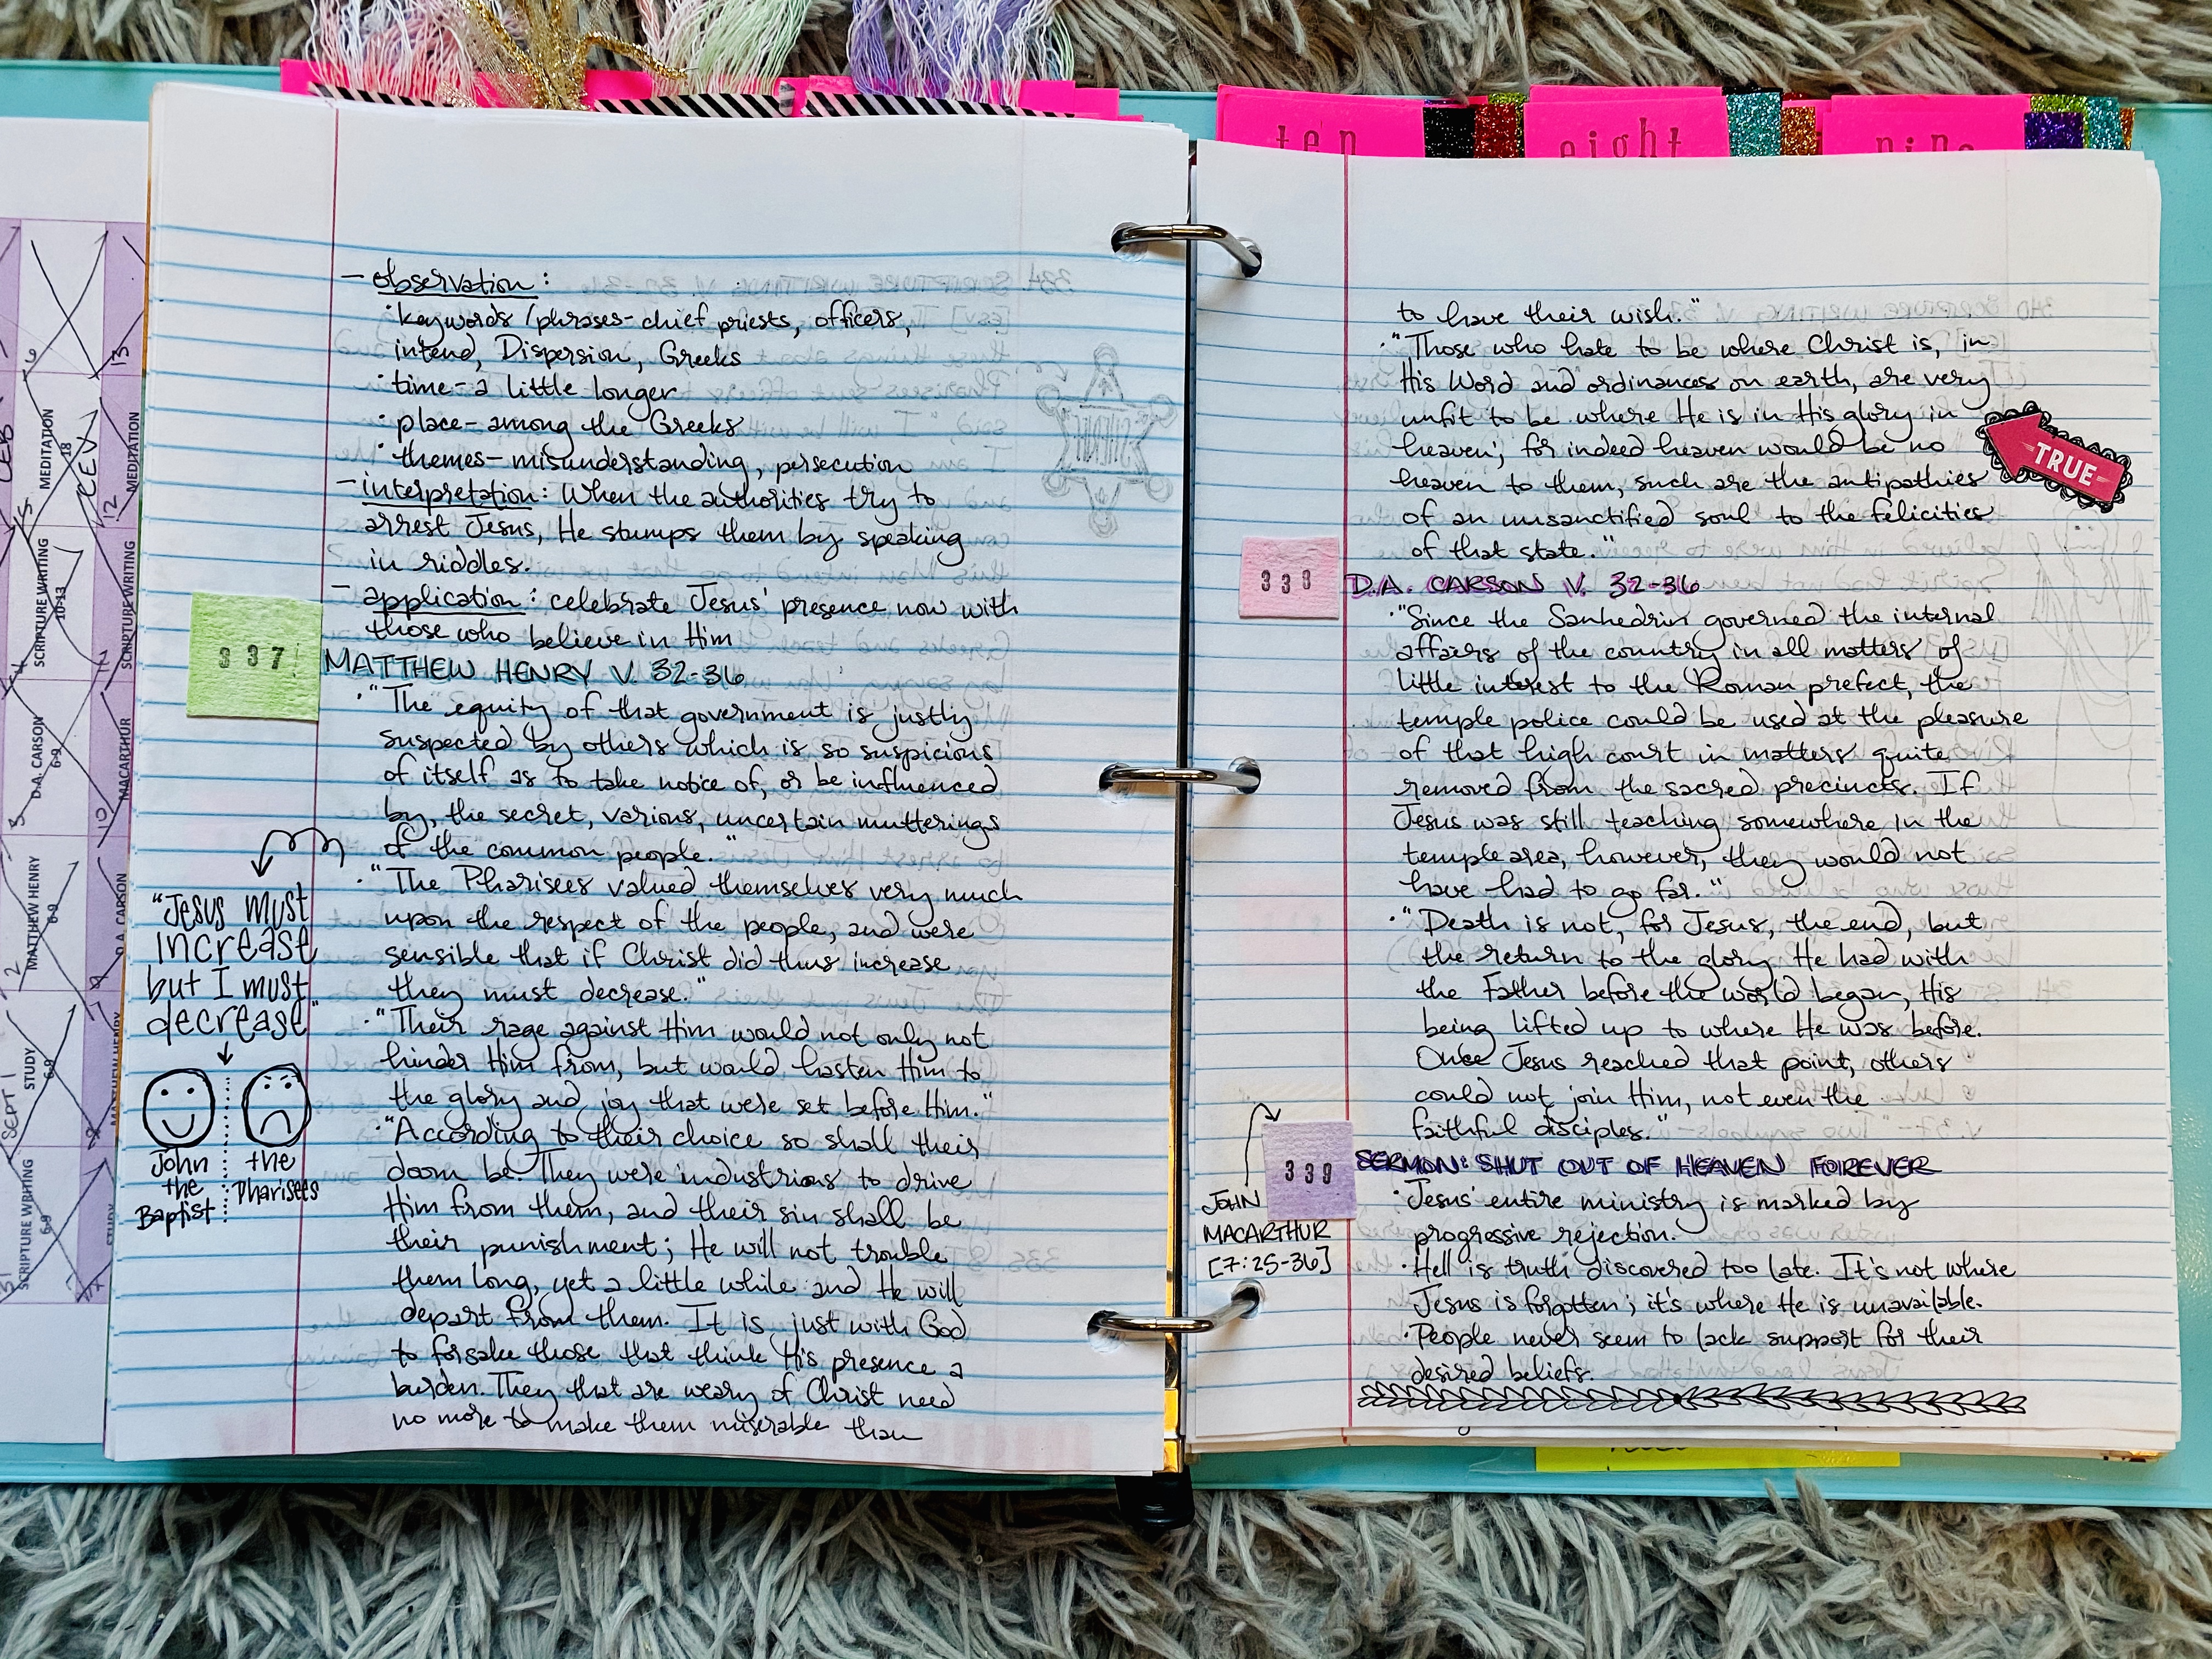 ten
eight
nine
- observation:
· keywords/phrases - chief priests, officers,
intend, Dispersion, Greeks
· time - a little longer
· place - among the Greeks
· themes - misunderstanding, persecution
- interpretation: When the authorities try to
arrest Jesus, He stumps them by speaking
in riddles.
- application: celebrate Jesus' presence now with
those who believe in Him
337
MATTHEW HENRY V. 32-36
· "The equity of that government is justly
suspected by others which is so suspicious
of itself as to take notice of, or be influenced
by, the secret, various, uncertain mutterings
of the common people."
· "The Pharisees valued themselves very much
upon the respect of the people, and were
sensible that if Christ did thus increase
they must decrease."
· "Their rage against Him would not only not
hinder Him from, but would hasten Him to
the glory and joy that were set before Him."
· "According to their choice so shall their
doom be. They were industrious to drive
Him from them, and their sin shall be
their punishment; He will not trouble
them long, yet a little while and He will
depart from them. It is just with God
to forsake those that think His presence a
burden. They that are weary of Christ need
no more to make them miserable than
"Jesus must
increase
but I must
decrease"
John
the
Baptist
the
Pharisees
to have their wish."
· "Those who hate to be where Christ is, in
His Word and ordinances on earth, are very
unfit to be where He is in His glory in
heaven; for indeed heaven would be no
heaven to them, such are the antipathies
of an unsanctified soul to the felicities
of that state."
TRUE
338
D.A. CARSON V. 32-36
· "Since the Sanhedrin governed the internal
affairs of the country in all matters of
little interest to the Roman prefect, the
temple police could be used at the pleasure
of that high court in matters quite
removed from the sacred precincts. If
Jesus was still teaching somewhere in the
temple area, however, they would not
have had to go far."
· "Death is not, for Jesus, the end, but
the return to the glory He had with
the Father before the world began, His
being lifted up to where He was before.
Once Jesus reached that point, others
could not join Him, not even the
faithful disciples."
339
SERMON: SHUT OUT OF HEAVEN FOREVER
JOHN
MACARTHUR
[7:25-36]
· Jesus' entire ministry is marked by
progressive rejection.
· Hell is truth discovered too late. It's not where
Jesus is forgotten; it's where He is unavailable.
· People never seem to lack support for their
desired beliefs.
MEDITATION
18
CEV
SCRIPTURE WRITING
10-13
D.A. CARSON
6-9
MATTHEW HENRY
6-9
STUDY
6-9
SCRIPTURE WRITING
6-9
SEPT 1
MEDITATION
SCRIPTURE WRITING
MACARTHUR
D.A. CARSON